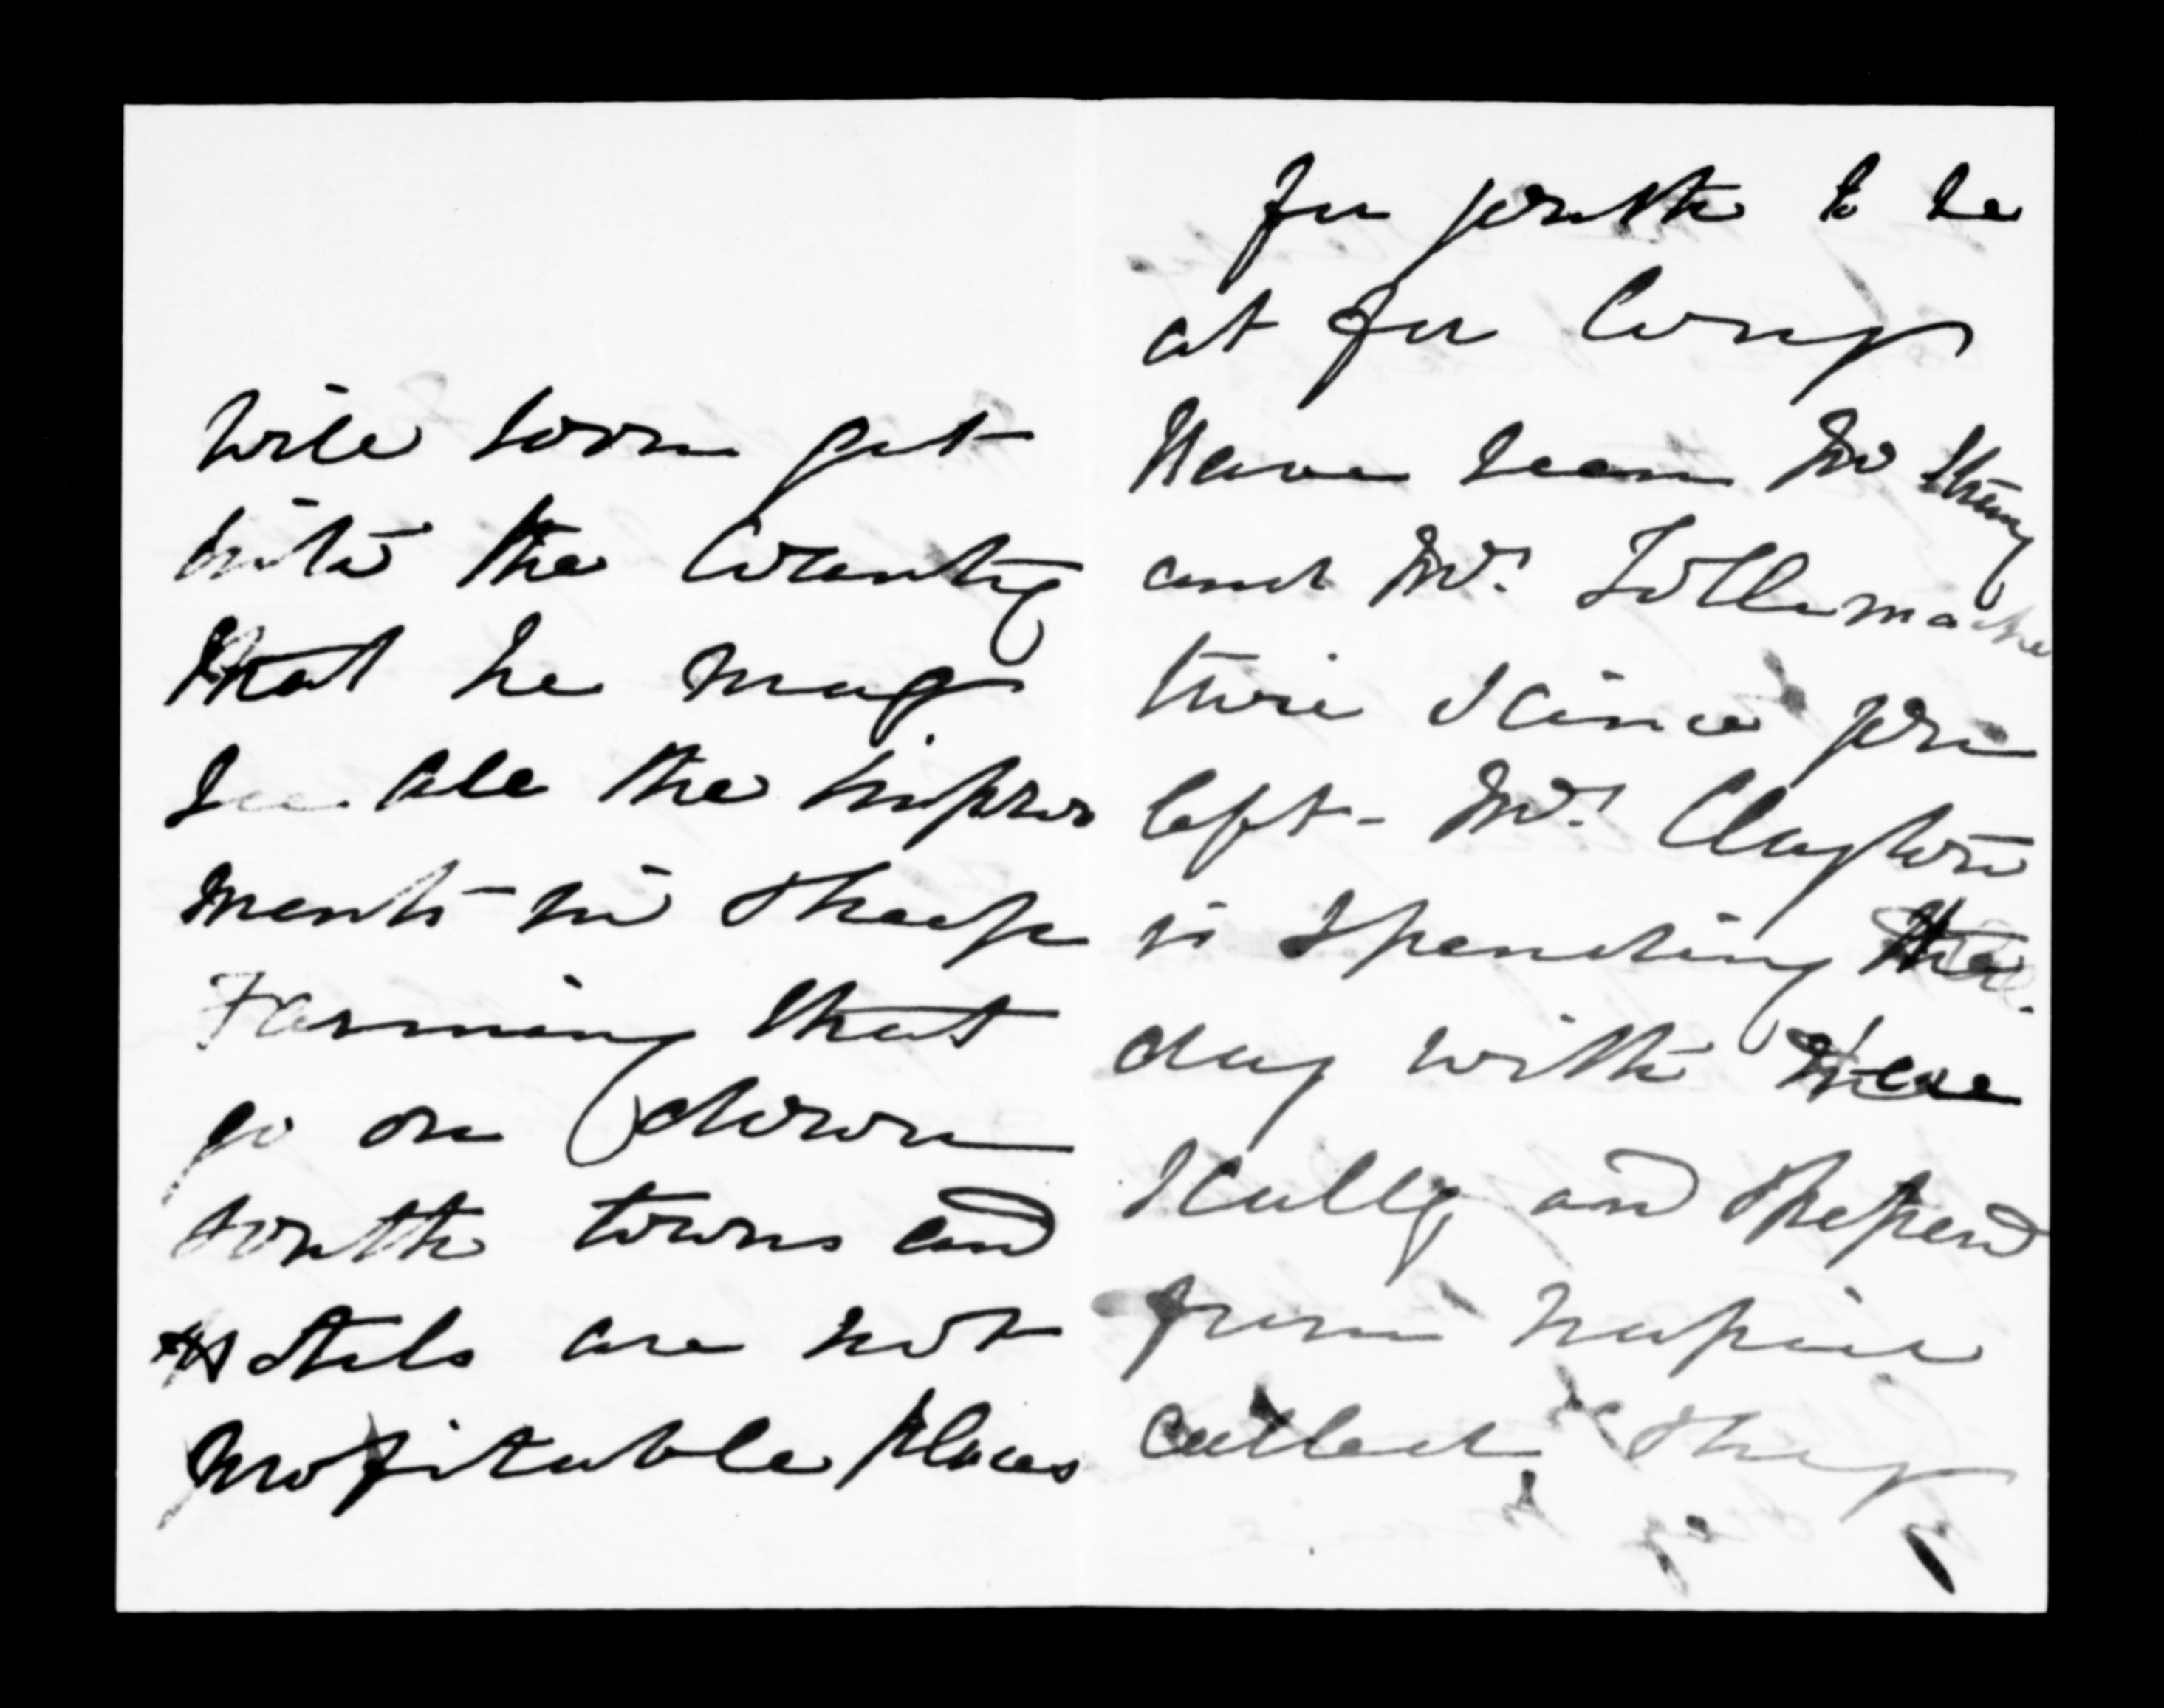 will soon get
into the Country
that he may
see all the improve
ments in sheep
Farming that
go on down
south towns and
Hotels are not
profitable places
for youth to be
at for long
Have seen Mr
and Mrs Tollemache
twice since you
left - Mrs Clayton
is spending the
day with
Kully and Shepherd
from Napier
called they